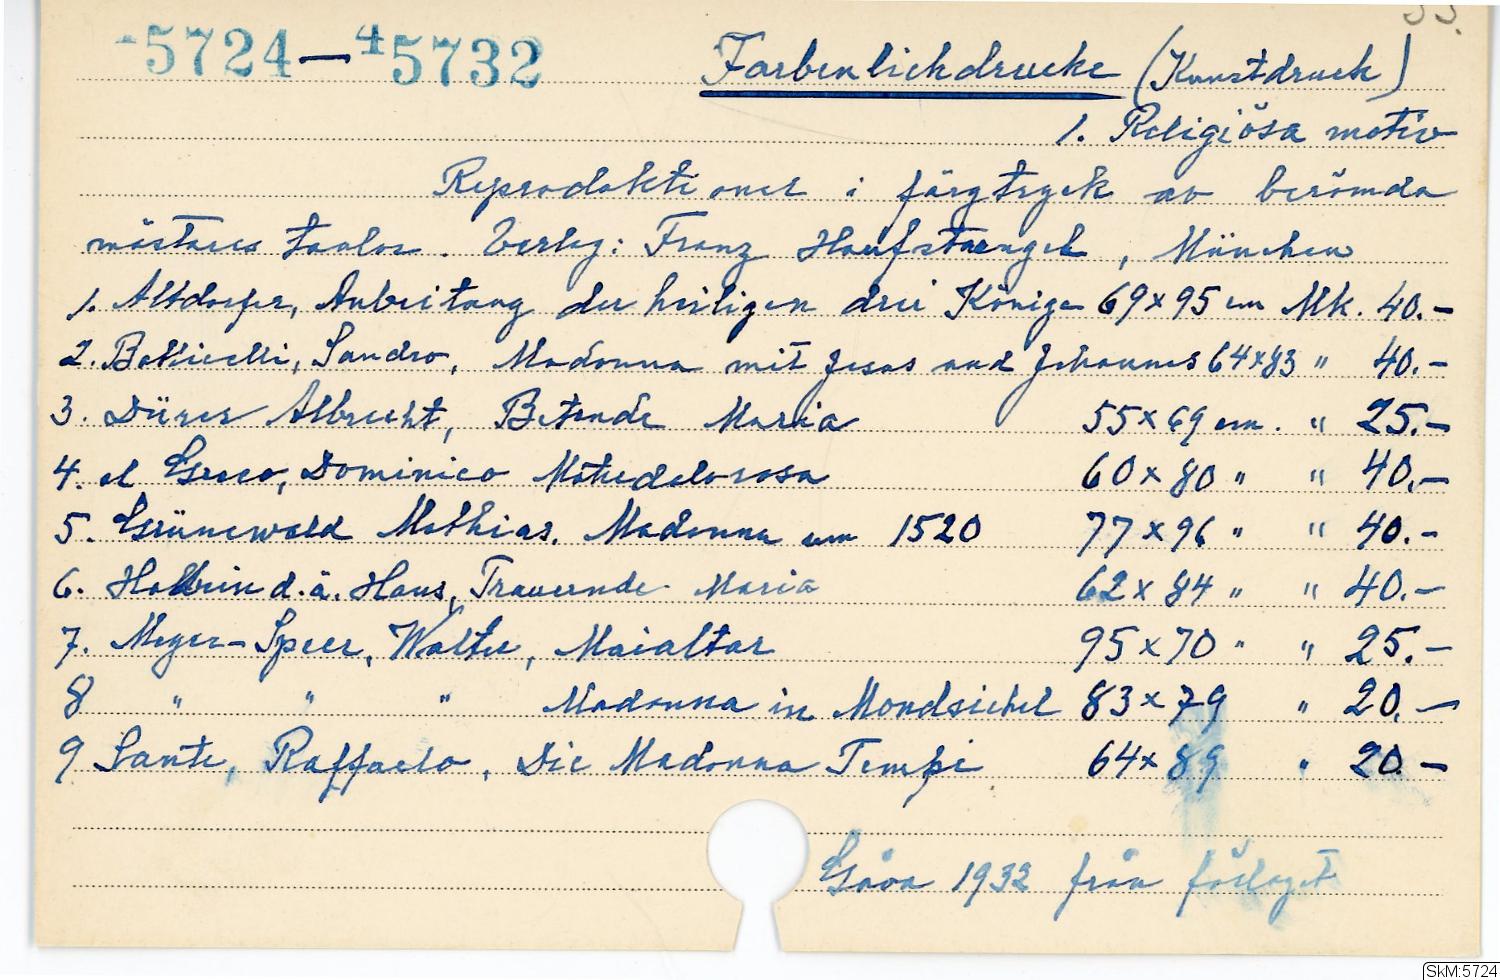 5724 — 45732
Farbenlichdrucke (Kunstdruck)
1. Religiösa motiv
Reproduktioner i färgtryck av berömda
mästares tavlor. Verlag: Franz Hanfstaengel, München
1. Altdorfer, Anbeitung der heiligen drei Könige 69x95 cm Mk. 40.-
2. Botticelli, Sandro, Madonna mit Jesus und Johannes 64x83 " 40.-
3. Dürer Albrecht, Betende Maria 55x69 cm. " 25.-
4. el Greco, Dominico Materdolorosa 60x80 " " 40.-
5. Grünewald Mathias. Madonna um 1520 77x96 " " 40.-
6. Holbein d.ä. Hans, Trauernde Maria 62x84 " " 40.-
7. Meyer-Speer, Walter, Maialtar 95x70 " " 25.-
8 " " " Madonna in Mondsichel 83x79 " 20.-
9 Sante, Raffaelo, Die Madonna Tempi 64x89 " 20.-
Gåva 1932 från förlaget
SkM:5724